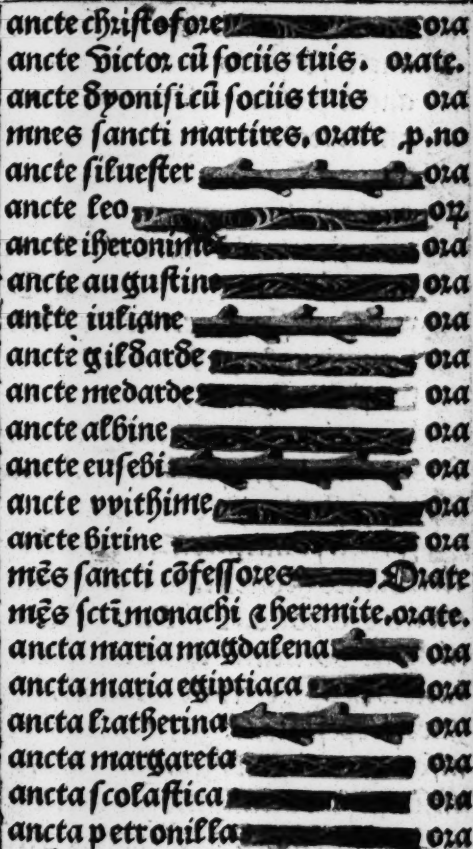 ancte christofore ora
ancte victor cū sociis tuis. orate.
ancte dyonisi.cū sociis tuis ora
mnes sancti martires, orate .p.no
ancte siluester ora
ancte leo
ancte iheronime ora
ancte augustine ora
ancte iuliane ora
ancte gildarde ora
ancte medarde ora
ancte albine ora
ancte eusebi ora
ancte vvithime ora
ancte birine ora
mēs sancti cōfessores Orate
mēs sctī monachi & heremite.orate.
ancta maria magdalena ora
ancta maria egiptiaca ora
ancta katherina ora
ancta margareta ora
ancta scolastica ora
ancta petronilla ora